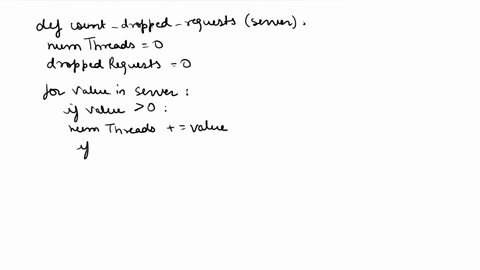 def count_dropped_requests (server).
num Threads = 0
dropped Requests = 0
for value in server :
if value > 0 :
num Threads += value
if